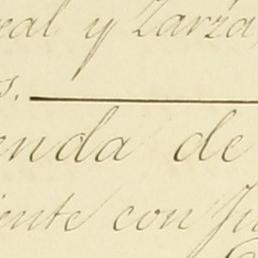 eal y Zarza,
s.
enda de
iente con Ju